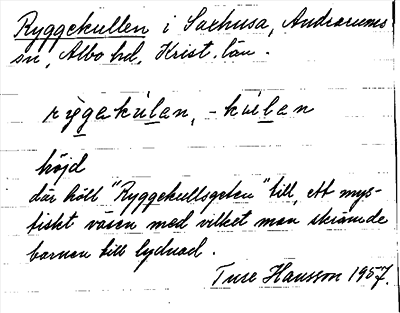 Ryggekullen i Saxhusa, Andrarums
sn, Albo hd, Krist. län.
rỳgakúlan, -kùlan
höjd
där höll "Ryggekullsgeten" till, ett mys-
tiskt väsen med vilket man skrämde
barnen till lydnad.
Ture Hansson 1957.